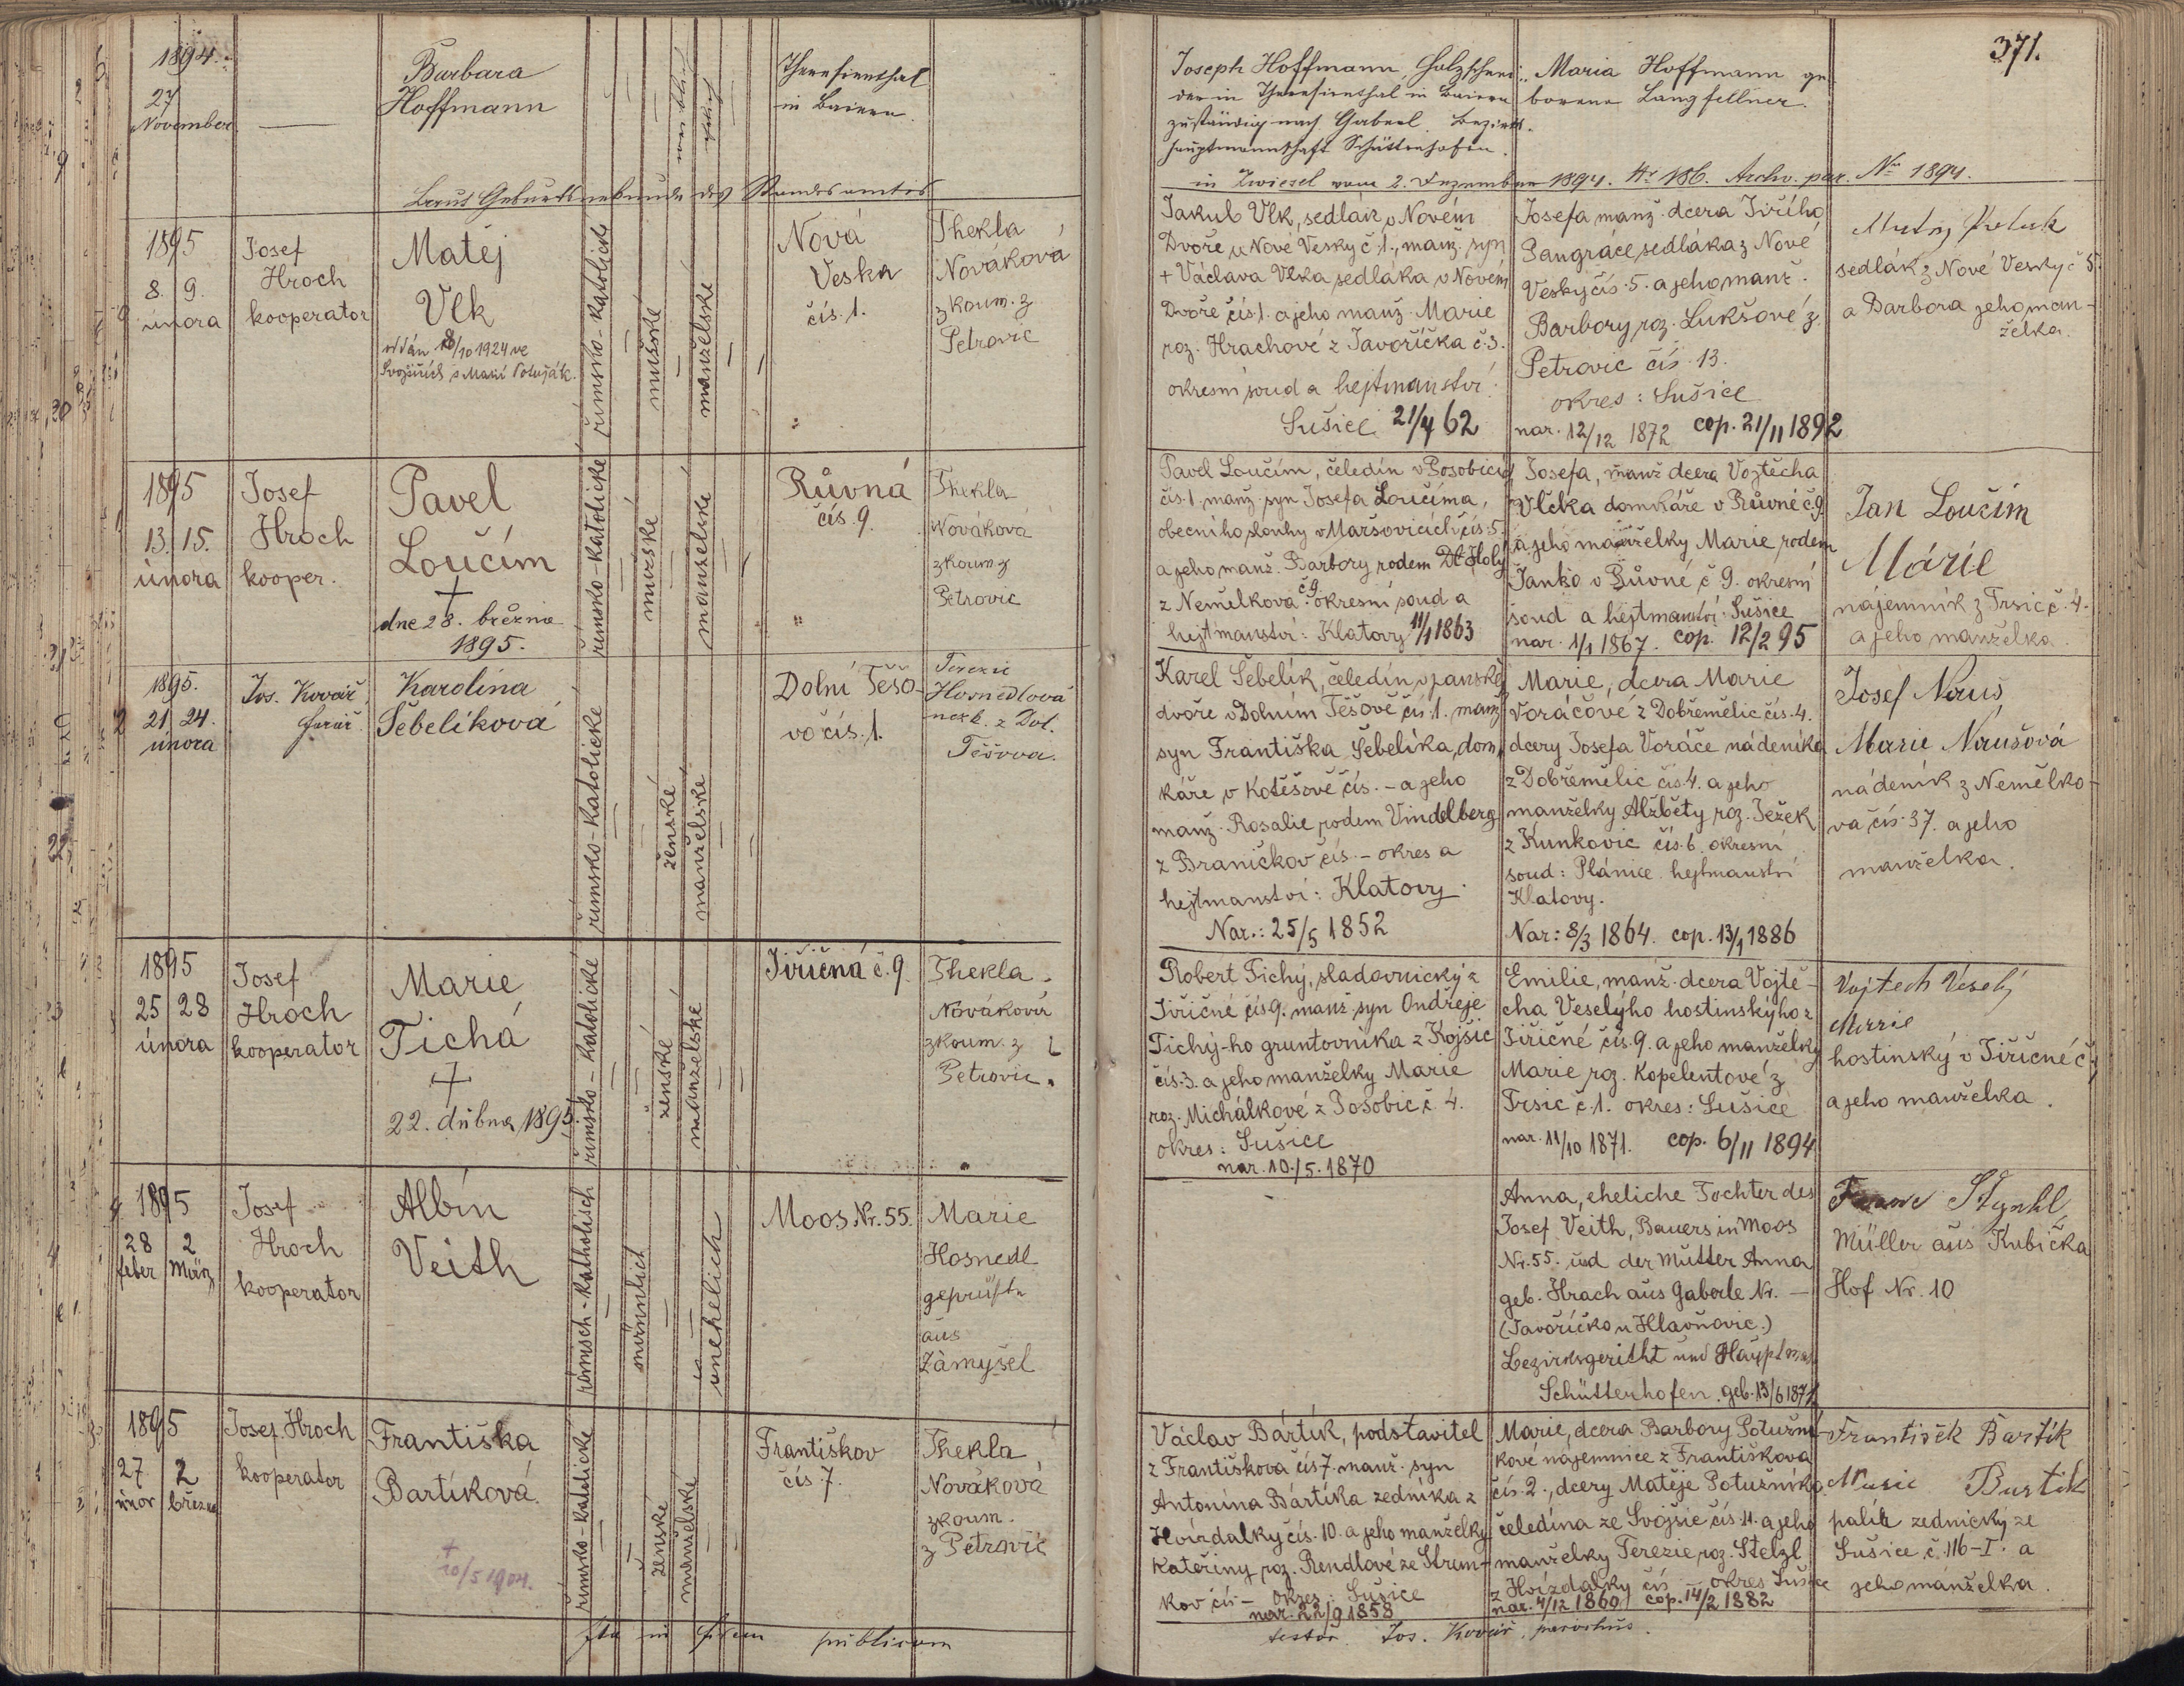 371.
1894.
27
November
Barbara
Hoffmann
weiblich
ehelich
Theresienthal
in Baiern.
Joseph Hoffmann Holzschnei-
der in Theresienthal in Baiern
zuständig nach Gaberl. Bezirks-
hauptmannschaft Schüttenhofen.
Maria Hoffmann ge-
borene Langfellner.
Laut Geburtsurkunde des Standesamtes
in Zwiesel vom 2. Dezember 1894. Nr 186. Archv. par. No 1894.
1895
8. 9.
února
Josef
Hroch
kooperator
Matěj
Vlk
oddán 18/10 1924 ve
Svojšicích s Marií Potužák.
římsko-katolické
mužské
manželské
Nová
Veska
čís. 1.
Thekla
Nováková
zkoum. z
Petrovic
Jakub Vlk, sedlák v Novém
Dvoře u Nové Vesky č. 1., manž. syn
+ Václava Vlka sedláka v Novém
Dvoře čís. 1. a jeho manž. Marie
roz. Hrachové z Javoříčka č. 3.
okresní soud a hejtmanství:
Sušice 21/4 62
Josefa manž. dcera Jiřího
Pangráce sedláka z Nové
Vesky čís. 5. a jeho manž.
Barbory roz. Lukšové z
Petrovic čís. 13.
okres: Sušice
nar. 12/12 1872 cop. 21/11 1892
sedlák z Nové Vesky č 5.
a Barbora jeho man-
želka.
1895
13. 15.
února
Josef
Hroch
kooper.
Pavel
Loučím
+
dne 28. března
1895.
římsko-katolické
mužské
manželské
Růvná
čís. 9.
Thekla
Nováková
zkoum. z
Petrovic
Pavel Loučím, čeledín v Posobicích
čís. 1. manž. syn Josefa Loučíma,
obecního slouhy v Maršovicích čís. 5.
a jeho manž. Barbory rodem Holý
z Nemělkova č 9. okresní soud a
hejtmanství: Klatovy 11/1 1863
Josefa, manž dcera Vojtěcha
Vlčka domkáře v Růvné č. 9
a jeho manželky Marie rodem
Janko v Růvné č 9. okresní
soud a hejtmanství: Sušice
nar. 1/1 1867. cop. 12/2 95
Jan Loučim
Márie
nájemník z Trsic č. 4.
a jeho manželka
1895.
21. 24.
února
Jos. Kovář,
farář.
Karolina
Šebelíková
římsko-katolické
ženské
manželské
Dolní Těšo-
vo čís. 1.
Terezie
Hosnedlová
nezk. z Dol.
Těšova.
Karel Šebelík, čeledín v panské
dvoře v Dolním Těšově čís. 1. manž
syn Františka Šebelíka, dom-
káře v Kotěšově čís. – a jeho
manž. Rosalie rodem Vindelberg
z Braníčkov čís. – okres a
hejtmanství: Klatovy.
Nar.: 25/5 1852
Marie, dcera Marie
Voráčové z Dobřemělic čís. 4.
dcery Josefa Voráče nádeníka
z Dobřemělic čís. 4. a jeho
manželky Alžběty roz. Ježek
z Kunkovic čís. 6. okresní
soud: Plánice hejtmanství
Klatovy.
Nar: 8/3 1864. cop. 13/1 1886
Josef Nauš
Marie Naušová
nádeník z Nemělko-
va čís. 37. a jeho
manželka.
1895
25 28
února
Josef
Hroch
kooperator
Marie
Tichá
+
22. dubna 1895
římsko-katolické
ženské
manželské
Jiřičná č. 9.
Thekla
Nováková
zkoum. z
Petrovic.
Robert Tichý, sladovnický z
Jiřičné čís 9. manž. syn Ondřeje
Tichý-ho gruntovníka z Kojšic
čís. 3. a jeho manželky Marie
roz. Michálkové z Posobic č. 4.
okres: Sušice
nar. 10./5. 1870
Emilie, manž. dcera Vojtě-
cha Veselýho hostinskýho z
Jiřičné čís. 9. a jeho manželky
Marie roz. Kopelentové z
Trsic č. 1. okres: Sušice
nar. 11/10 1871. cop. 6/11 1894
Vojtech Veselý
Marie
hostinský v Jiřičné č 9
a jeho manželka.
1895
28 2
feber März
Josef
Hroch
kooperator
Albín
Veith
römisch-katholisch
männlich
unehelich
Moos Nr. 55.
Marie
Hosnedl
geprüfte
aus
Zámyšel
Anna, eheliche Tochter des
Josef Veith, Bauers in Moos
Nr. 55. und der Mutter Anna
geb. Hrach aus Gaberle Nr. –
(Javoříčko u Hlavňovic.)
Bezirksgericht und Hauptm.
Schüttenhofen. geb. 13/6 1871
Müller aus Kubička
Hof Nr. 10
1895
27 2
únor března
Josef Hroch
kooperator
Františka
Bartíková.
+
20/5 1904.
římsko-katolické
ženské
manželské
Františkov
čís 7.
Thekla
Nováková
zkoum.
z Petrovic
Václav Bártík, podstavitel
z Františkova čís 7. manž. syn
Antonína Bártíka zedníka z
Hvízdalky čís. 10. a jeho manželky
Kateřiny roz. Rendlové ze Strun-
kov čís – okres: Sušice
nar. 22/9 1858
Marie, dcera Barbory Potužní-
kové nájemnice z Františkova
čís. 2., dcery Matěje Potužníka
čeledína ze Svojšic čís. 4. a jeho
manželky Terezie roz. Stelzl
z Hvízdalky čís – okres Sušice
nar. 4/12 1860 cop. 14/2 1882
František Bartik
Marie Bartik
palír zednický ze
Sušice č. 116-I. a
jeho manželka.
Ita in fidem publicam
testor Jos. Kovář, parochus.